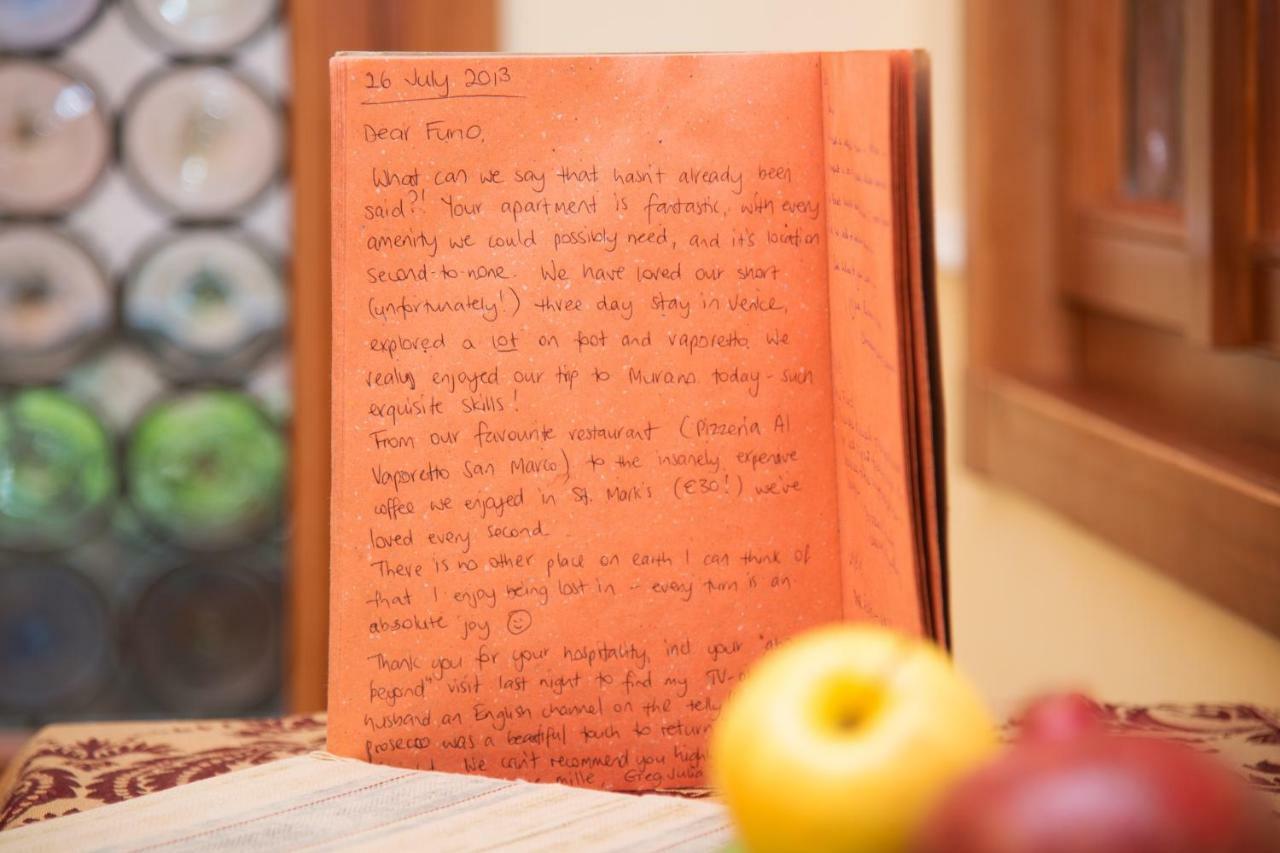 26 July 2013
Dear Funo,
What can we say that hasn't already been
said?! Your apartment is fantastic, with every
amenity we could possibly need, and it's location
second-to-none. We have loved our short
(unfortunately!) three day stay in Venice,
explored a lot on foot and vaporetto. We
really enjoyed our trip to Murano today - such
exquisite skills!
From our favourite restaurant (Pizzeria Al
Vaporetto San Marco) to the insanely expensive
coffee we enjoyed in St. Mark's (€30!) we've
loved every second.
There is no other place on earth I can think of
that I enjoy being lost in - every turn is an
absolute joy ☺
Thank you for your hospitality, incl your
beyond" visit last night to find my TV-
husband an English channel on the telly
prosecco was a beautiful touch to return
We can't recommend you high
mille, Greg, Julia